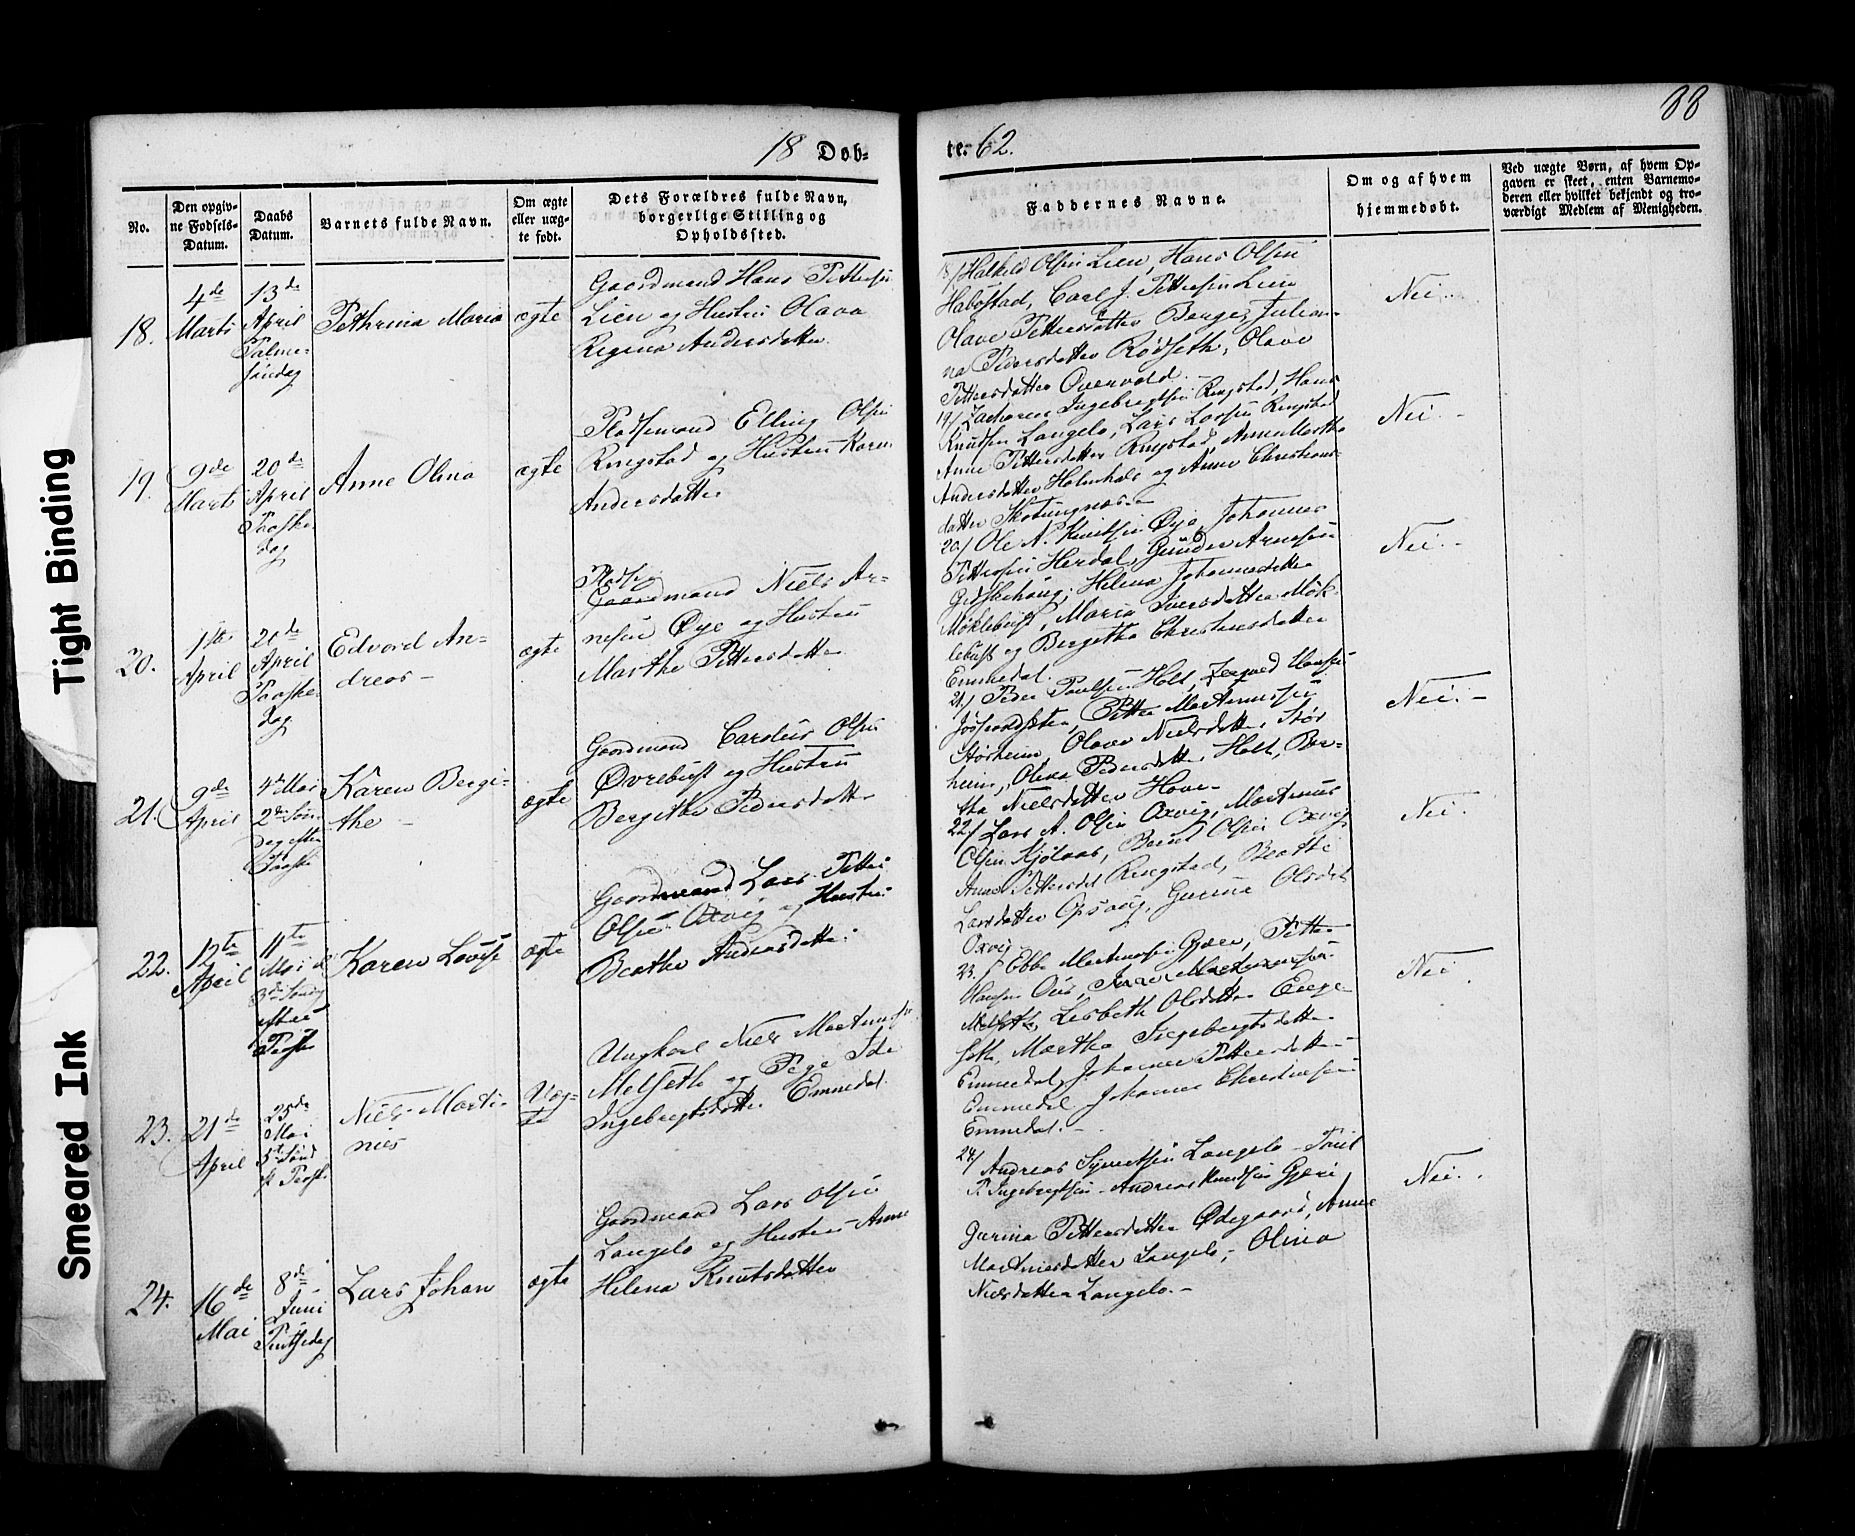 88
18 Døb-
te. 62.
No.
Den opgiv-
ne Fødsels-
Datum.
Daabs
Datum.
Barnets fulde Navn.
Om ægte
eller uæg-
te født.
Dets Forældres fulde Navn,
borgerlige Stilling og
Opholdssted.
Faddernes Navne.
Om og af hvem
hjemmedøbt.
Ved uægte Børn, af hvem Op-
gaven er skeet, enten Barnemo-
deren eller hvilket bekjendt og tro-
værdigt Medlem af Menigheden.
18.
4de
Marts
13de
April
Palme-
søndag
Pethrina Maria
ægte
Gaardmand Hans Pettersen
Lien og Hustru Olava
Regina Andersdatter
18/ Halkild Olsen Lien, Hans Olsen
Habostad, Carl J. Pettersen Lien
Olave Pettersdatter Berge, Julian-
na Pedersdatter Rødseth, Olave
Pettersdatter Overvold. -
Nei
19.
9de
Marts
20de
April
Paaske
dag
Anne Olina
ægte
Pladsemand Elling Olsen
Ringstad og Hustru Karn
Andersdatter
19/ Zacharias Ingebregtsen Ringstad, Hans
Knutsen Langelo, Lars Larsen Ringstad
Anne Pettersdatter Ringstad, Anne Martha
Andersdatter Holmhals og Anne Christians-
datter Skotungnæs -
Nei. -
20.
1ste
April
20de
April
Paaske
dag
Edvard An-
dreas -
ægte
Pladse
Gaardmand Niels Ar-
nesen Øye og Hustru
Marthe Pettersdatter
20/ Ole A. Knutsen Øye, Johannes
Pettersen Herdal, Gunder Arnesen
Gidskehaug, Helena Johannesdatter
Møklebust, Maria Iversdatter Møk-
lebust og Bergitha Christensdatter
Emmedal.
Nei. -
21.
9de
April
4de Mai
2den Søn-
dag efter
Paaske
Karen Bergi-
the -
ægte
Gaardmand Carolus Olsen
Øvrebust og Hustru
Bergithe Pedersdatter
21/ Peder Paulsen Holt, Hansen
Petter Martinussen
Størheim, Olave Nielsdatter Stør
heim, Olina Pedersdatter Holt, Ber-
tha Nielsdatter Hove -
Nei. -
22.
12te
April
11te
Mai
3die Søndag
efter
Paaske
Karen Lovise
ægte
Gaardmand Lars Petter
Olsen Oxvig og Hustru
Beathe Andersdatter
22/ Lars A. Olsen Oxvig, Martinus
Olsen Kjølaas, Bernt Olsen Oxvig
Anne Pettersdat Ringstad, Beathe
Larsdatter Opsvig, Gurine Olsdat
Oxvig
Nei.
23.
21de
April
25de
Mai
5te Sønd
ft Paaske
Niels Marti-
nus
Uæg-
te
Ungkarl Niels Martinus
Melseth og Pige Ide
Ingebregtsdatter Emmedal
23. / Ebbe Martinussen Gjære, Petter
Hansen Martinussen
Melseth, Lisbeth Olsdatter Enge-
seth, Martha Ingebregtsdatter
Emmedal, Johanne Pettersdatter
Emmedal Johannes Christensen
Emmedal. -
Nei
24.
16de
Mai
8de
Juni
Pintsedag
Lars Johan
ægte
Gaardmand Lars Olsen
Langelo og Hustru Anne
Helena Knutsdatter
24/ Andreas Syvertsen Langelo -
P. Ingebregtsen - Andreas Knudsen Gjære
Gurina Pettersdatter Ødegaard, Anne
Martinusdatter Langelo, Olina
Nielsdatter Langelo. -
Nei.
Tight Binding
Smeared Ink